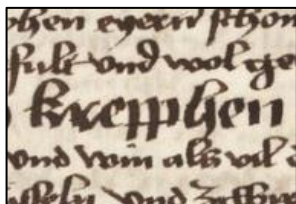 phen eyern schon
fult vnd wol ge
krepphen
vnd win als vil
vnd